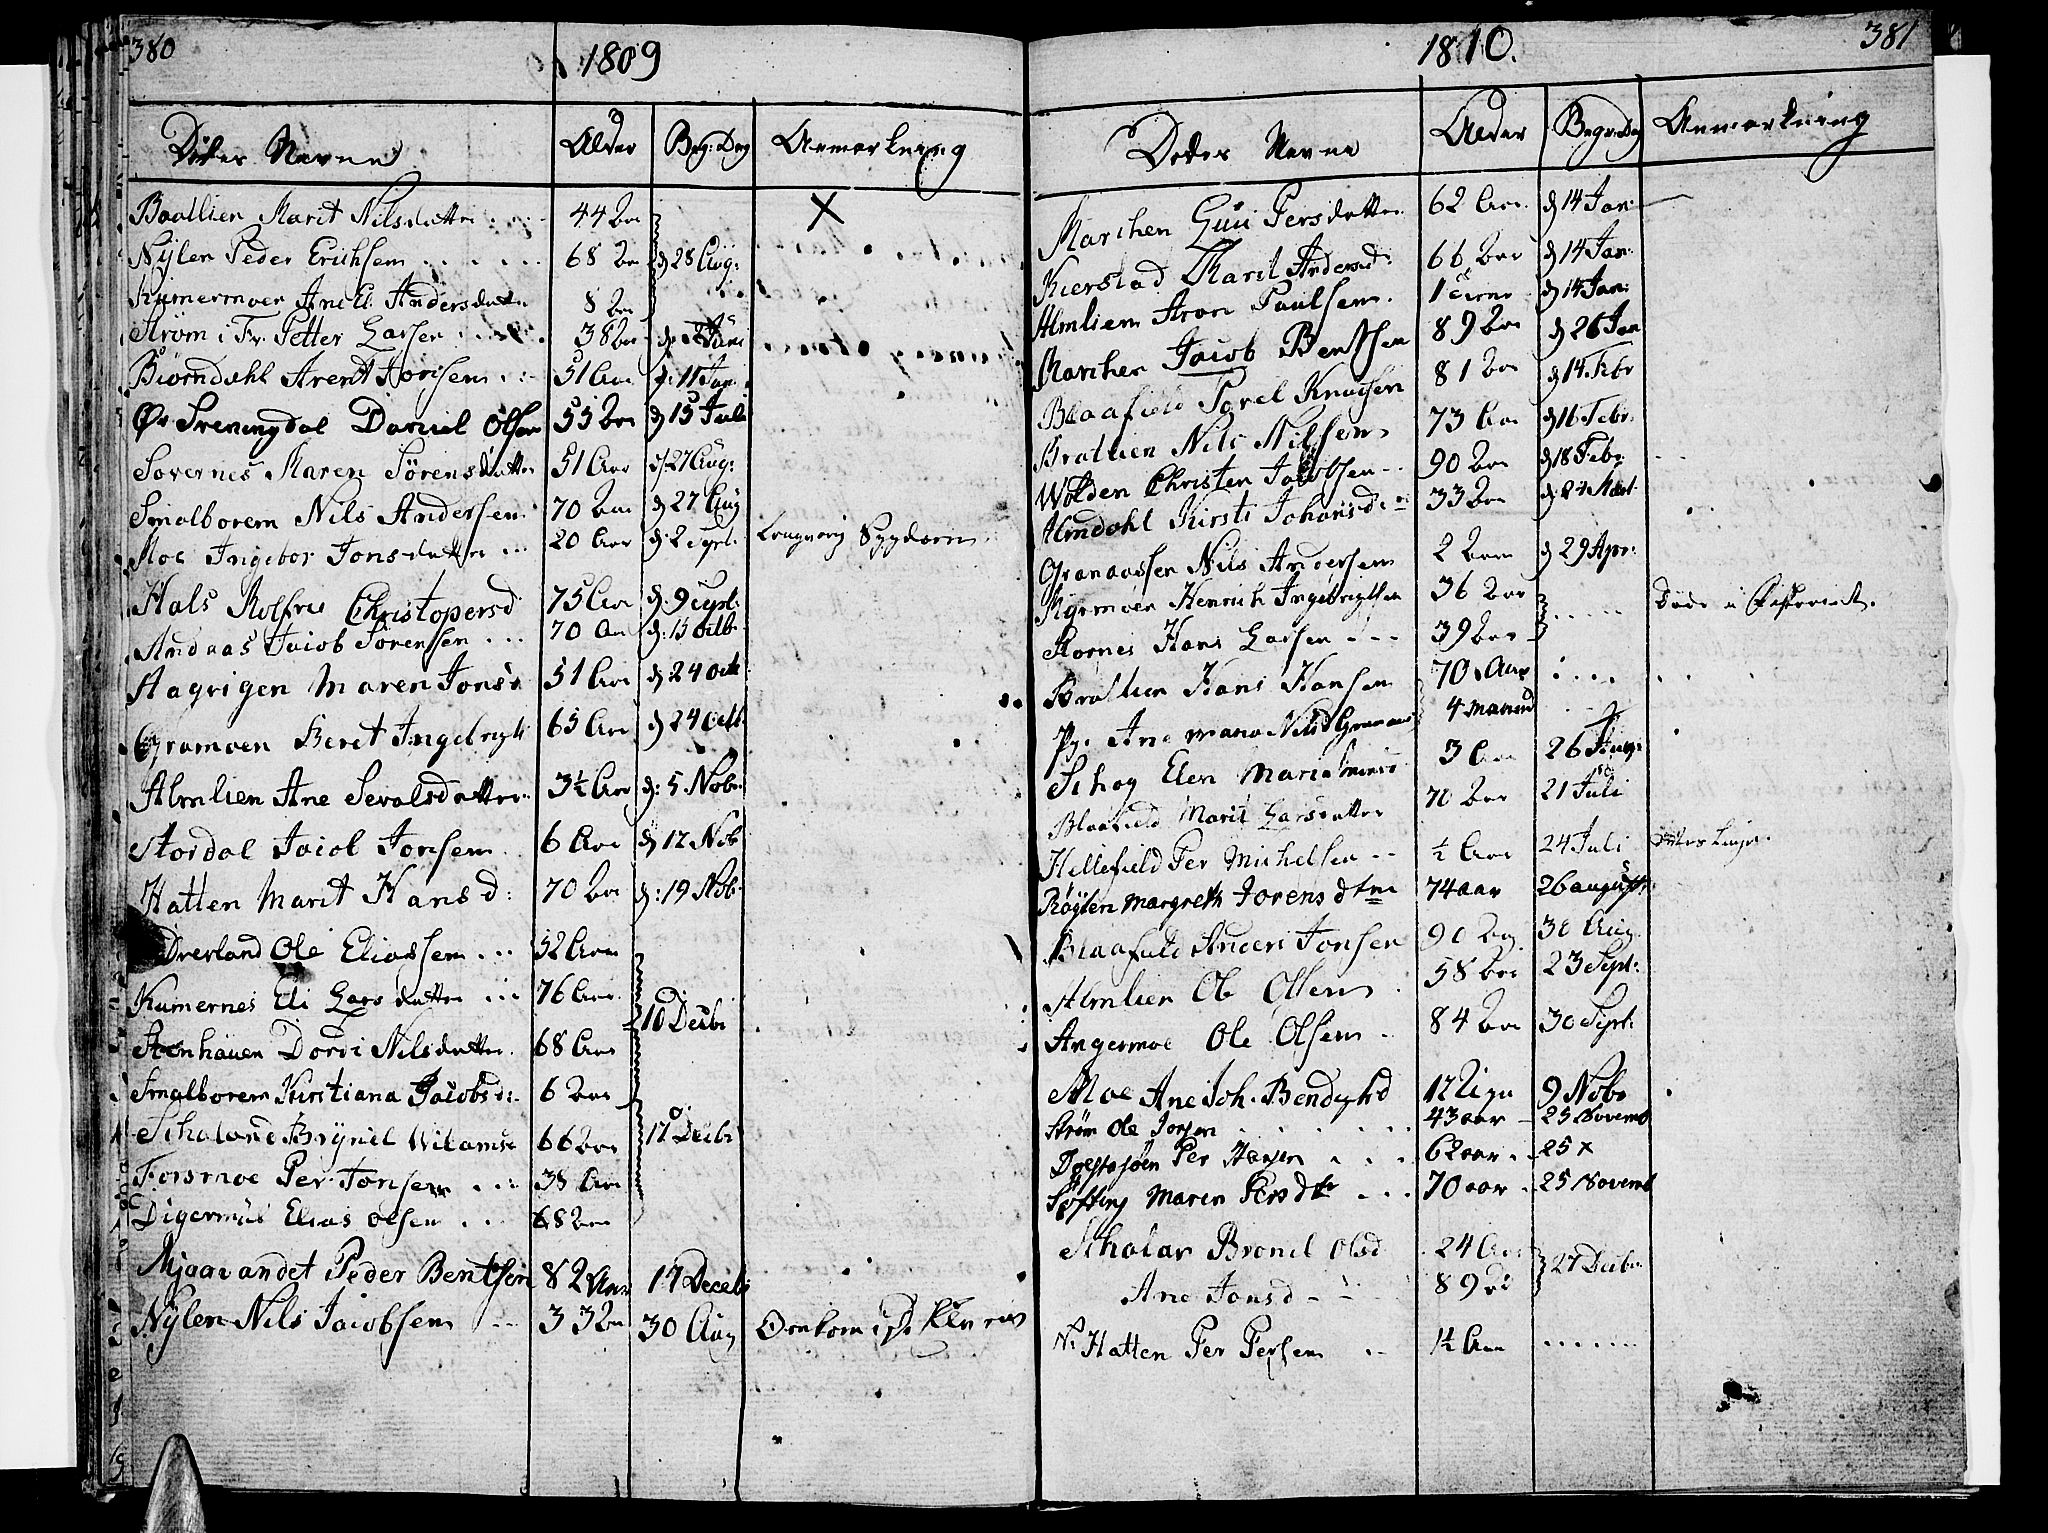 380
1809
Døder Navne Alder Beg: Dag Anmerkning
Baallien Marit Nilsdatter 44 Aar X
Nÿlen Peder Erichsen 68 Aar d 28 Aug:
Kumermoen Ane El. Andersdatter 8 Aar
Strøm i Fr. Petter Larsen 38 Aar Juni
Biørndahl Arent Jonsen 51 Aar d: 11 Jan:
Øv Sveningdal Daniel Olsen 55 Aar d 15 Juli
Sovernes Maren Sörensdatter 51 Aar d 27 Aug:
Smalborem Nils Andersen 70 Aar d 27 Aug
Moe Ingebor Jonsdatter 20 Aar d. 2 Sept. Langvarig Sygdom
Hals Rolfru Christopersd 75 Aar d. 9 Sept:
Andaas Jacob Sörensen 70 Aar d: 15 octb.
Hagrigen Maren Jonsd 51 Aar d 24 octb
Gramoen Beret Ingebrigt 65 Aar d 24 octb.
Almlien Ane Sevalsdatter 3½ Aar d: 5 Nobr.
Stordal Jacob Jonsen 6 Aar d 12 Nob
Hatten Marit Hans d: 70 Aar d: 19 Nob.
Drevland Ole Eliassen 52 Aar
Kumernes Eli Larsdatter 76 Aar
10 Decbr
Steenhauen Dordi Nilsdatter 68 Aar
Smalborem Kirstiana Jacobsd: 6 Aar
Schalvand Brÿnel Wilamsd 66 Aar 17 Decbr
Forsmoe Per Jonsen 38 Aar
Digermul Elias olsen 68 Aar
Mjaavandet Peder Bentsen 82 Aar 17 Decebr
Nÿlen Nils Jacobsen 33 Aar 30 Aug Omkom i
381
1810.
Døder Navne Alder Begr: Dag Anmerkning
Marchen Guu Persdatter 62 Aar d 14 Jan:
Kierstad Marit Andersd: 66 Aar d 14 Jan:
Almliem Aron Paulsen 1 d 14 Jan:
Marchen Jacob Bentsen 89 Aar d 26 Jan
Blaafield Torel Knudsen 81 Aar d 14 Febr
Bratlien Nils Nilsen 73 Aar d 16 Febr.
Wolden Christen Jacobsen 90 Aar d 18 Febr
Almdahl Kirsti Johansd: 33 Aar d: 24 Mart
Granaassen Nils Andersen 2 Aar d 29 Apr:
Kyrmoen Henrich Ingebrigtsen 36 Aar Døde i
Stornes Hans Larsen 39 Aar
Bratlien Hans Hansen 70 Aar
Pg. Ane maria Nilsd 4 Maaned
Schog Elen Maria 3 Aar 26 Aug:
Blaafield Marit Larsdatter 70 Aar 21 Juli
Hellefield Per Michelsen ½ Aar 24 Juli
Røÿten Margreth Jorens dtr 74 aar 26 august
Blaafield Anders Jonsen 90 Aar 30 Aug
Almlien Ole Olsen 58 Aar 23 Sept:
Angermoe Ole Olsen 84 Aar 30 Sept:
Moe Ane Joh. Bendighd 12 Uger 9 Nobr
Strøm Ole Jorgen 43 aar 25 Novemb
Dolstasøen Per Hansen 62 aar 25 x
Søfting Maren Pers dtr 70 aar 25 Novemb
Schalav Bronel olsd 24 Aar
27 Decbr
Ane Jonsd 89
N: Hatten Per Persen 1½ Aar